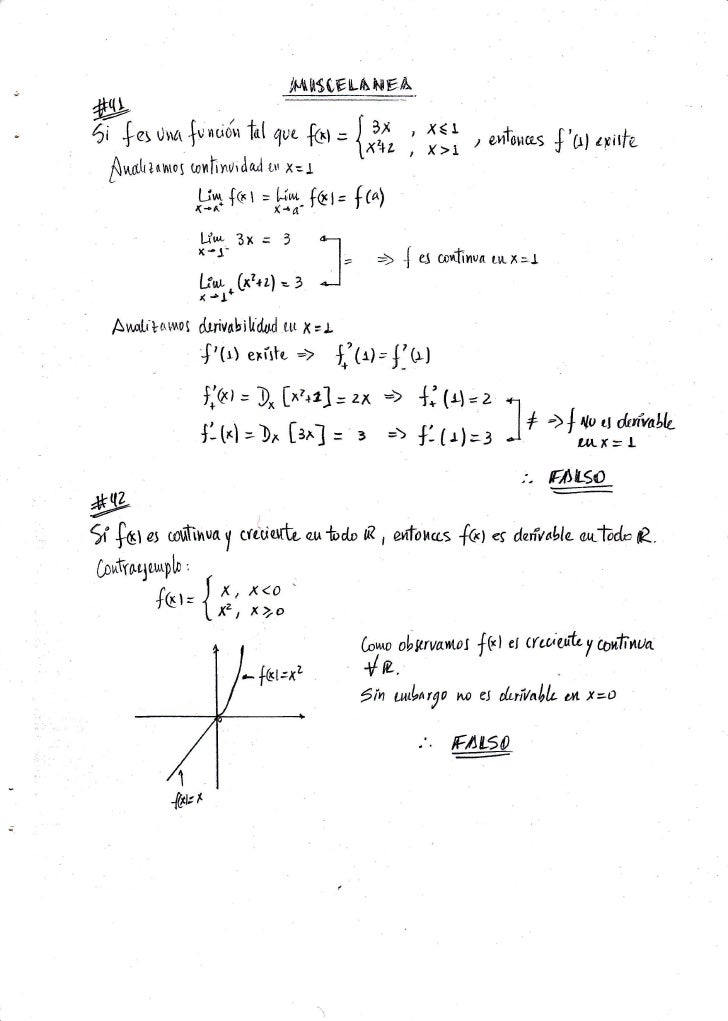 MISCELANEA
#41
Si f es una función tal que f(x) = { 3x , x≤1
x²+2 , x>1 , entonces f'(1) existe
Analizamos continuidad en x=1
Lim x→a⁺ f(x) = Lim x→a⁻ f(x) = f(a)
Lim x→1⁻ 3x = 3
= ⇒ f es continua en x=1
Lim x→1⁺ (x²+2) = 3
Analizamos derivabilidad en x=1
f'(1) existe ⇒ f'₊(1) = f'₋(1)
f'₊(x) = Dx [x²+2] = 2x ⇒ f'₊(1) = 2
≠ ⇒ f No es derivable
en x=1
f'₋(x) = Dx [3x] = 3 ⇒ f'₋(1) = 3
∴ FALSO
#42
Si f(x) es continua y creciente en todo ℝ, entonces f(x) es derivable en todo ℝ.
Contraejemplo:
f(x) = { x , x<0
x² , x≥0
f(x)=x²
f(x)=x
Como observamos f(x) es creciente y continua
∀ ℝ.
Sin embargo no es derivable en x=0
∴ FALSO